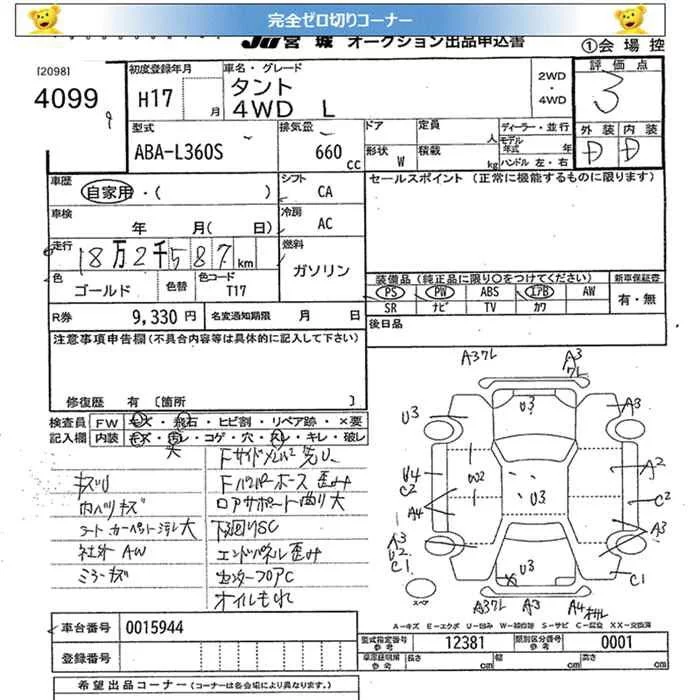 完全ゼロ切りコーナー
JU 宮城 オークション出品申込書 ①会場控
[2098]
4099
初度登録年月
H17 月
車名・グレード
タント
4WD L
2WD
・
4WD
評価点
3
型式
ABA-L360S
排気量
660 cc
ドア
形状 W
定員 人
積載 kg
ディーラー・並行
モデル年式 年
ハンドル 左・右
外装 内装
D D
車歴
自家用・( )
シフト
CA
セールスポイント (正常に機能するものに限ります)
車検
年 月( 日)
冷房
AC
走行
18万2千587 km
燃料
ガソリン
色
ゴールド
色替
色コード
T17
装備品 (純正品に限り○をつけてください) 新車保証書
PS PW ABS エアB AW 有・無
SR ナビ TV カワ
R券 9,330 円 名変通知期限 月 日
後日品
注意事項申告欄 (不具合内容等は具体的に記入して下さい)
修復歴 有 [箇所 ]
検査員 FW キズ・飛石・ヒビ割・リペア跡・×要
記入欄 内装 キズ・汚レ・コゲ・穴・スレ・キレ・破レ
大
キズU
内ハリキズ
シートカーペット汚レ大
社外AW
ミラーキズ
Fサイドメンバー先U
Fバンパーホース歪み
ロアサポート曲り大
下回りSC
エンドパネル歪み
センターフロアC
オイルもれ
A3ワレ A3
ワレ
U3 U3 A3
U4
C2 W2 A2
A4 U3 C2
A3
U2
C1 A3
U3 C1
スペア
A3ワレ A3 A4
A-キズ E-エクボ U-凹み W-補修跡 S-サビ C-腐食 XX-交換済
車台番号 0015944
登録番号
型式指定番号 参考 12381 類別区分番号 参考 0001
車庫証明用 参考 長さ cm 幅 cm 高さ cm
希望出品コーナー (コーナーは各会場により異なります。)